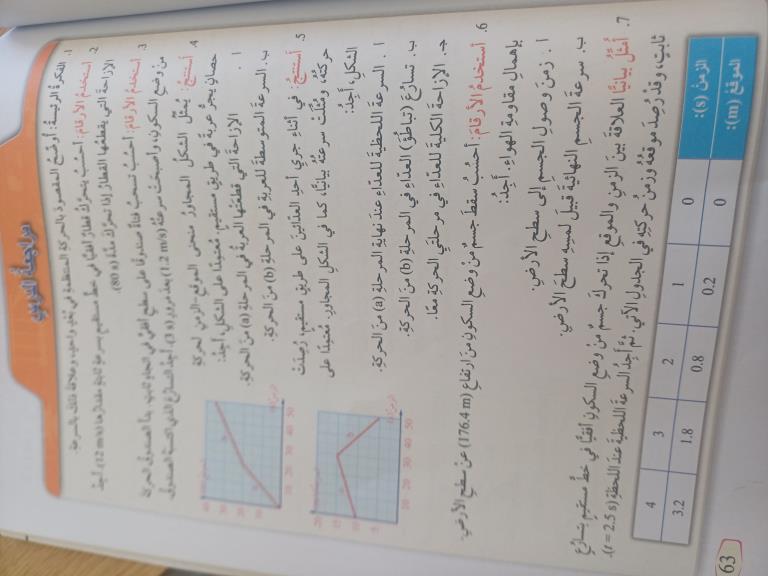 مراجعةُ الدَّرسِ
1. الفكرةُ الرئيسةُ: أوضّحُ المقصودَ بالحركةِ المنتظمةِ في بُعْدٍ واحدٍ، وعلاقةَ ذلكَ بالسرعةِ.
2. أستخدمُ الأرقامَ: أحسُبُ: يتحرَّكُ قطارٌ أفقيًّا في خطٍّ مستقيمٍ بسرعةٍ ثابتةٍ مقدارُها (12 m/s). أجدُ
الإزاحةَ التي يقطعُها القطارُ إذا تحرَّكَ مدَّةَ (80 s).
3. أستخدمُ الأرقامَ: أحسُبُ: تسحبُ فتاةٌ صندوقًا على سطحٍ أفقيٍّ في اتجاهٍ ثابتٍ. بدأَ الصندوقُ الحركةَ
من وضعِ السكونِ، وأصبحتْ سرعتُهُ (1.2 m/s) بعدَ مرورِ (3 s). أجدُ التسارعَ الذي اكتسبَهُ الصندوقُ.
4. أستنتجُ: يُمثّلُ الشكلُ المجاورُ منحنى الموقعِ-الزمنِ لحركةِ
حصانٍ يجرُّ عربةً في طريقٍ مستقيمٍ. مُعتمِدًا على الشكلِ، أجدُ:
أ . الإزاحةَ التي قطعَتْها العربةُ في المرحلةِ (a) منَ الحركةِ.
ب. السرعةَ المتوسطةَ للعربةِ في المرحلةِ (b) منَ الحركةِ.
40
30
20
10
10 20 30 40 50
a
b
5. أستنتجُ: في أثناءِ جريِ أحدِ العدّائينَ على طريقٍ مستقيمٍ، رُصِدَتْ
حركتُهُ، ومُثِّلَتْ سرعتُهُ بيانيًّا، كما في الشكلِ المجاورِ. مُعتمِدًا على
الشكلِ، أجدُ:
أ . السرعةَ اللحظيةَ للعدّاءِ عندَ نهايةِ المرحلةِ (a) منَ الحركةِ.
ب. تسارُعَ (تباطُؤَ) العدّاءِ في المرحلةِ (b) منَ الحركةِ.
جـ. الإزاحةَ الكليةَ للعدّاءِ في مرحلتَيِ الحركةِ معًا.
20
15
10
5
10 20 30 40 50
a
b
6. أستخدمُ الأرقامَ: أحسُبُ: سقطَ جسمٌ من وضعِ السكونِ منَ ارتفاعِ (176.4 m) عنْ سطحِ الأرضِ.
بإهمالِ مقاومةِ الهواءِ. أجدُ:
أ . زمنَ وصولِ الجسمِ إلى سطحِ الأرضِ.
ب. سرعةَ الجسمِ النهائيةَ قبيلَ لمسِهِ سطحَ الأرضِ.
7. أُمثّلُ بيانيًّا العلاقةَ بينَ الزمنِ والموقعِ إذا تحرَّكَ جسمٌ منْ وضعِ السكونِ أفقيًّا في خطٍّ مستقيمٍ بتسارُعٍ
ثابتٍ، وقدْ رُصِدَ موقعُهُ وزمنُ حركتِهِ في الجدولِ الآتي. ثمَّ أجدُ السرعةَ اللحظيةَ عندَ اللحظةِ (t = 2.5 s).
الزمنُ (s): 0 1 2 3 4
الموقعُ (m): 0 0.2 0.8 1.8 3.2
63